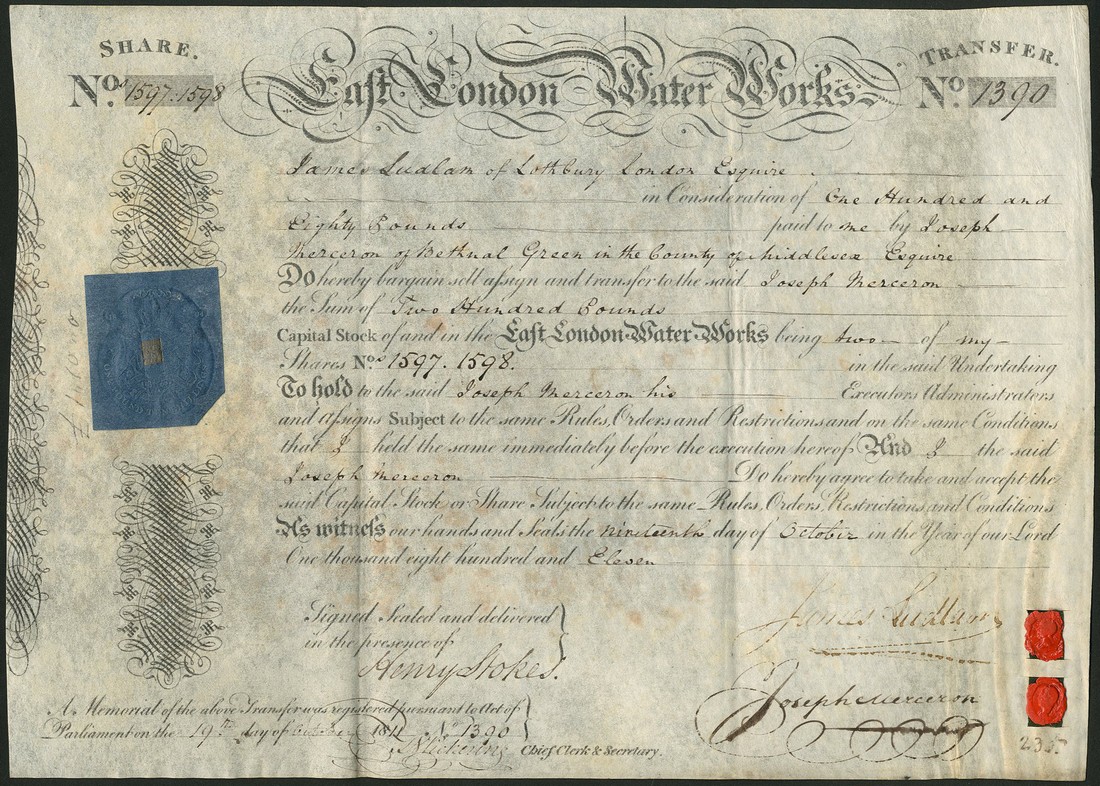 SHARE.
No. 1597.1598
East London Water Works
TRANSFER.
No. 1390
James Ludlam of Lothbury London Esquire
in Consideration of One Hundred and
Eighty Pounds paid to me by Joseph
Merceron of Bethnal Green in the County of Middlesex Esquire
Do hereby bargain sell assign and transfer to the said Joseph Merceron
the Sum of Two Hundred Pounds
Capital Stock of and in the East London Water Works being two of my
Shares Nos. 1597. 1598. in the said Undertaking
To hold to the said Joseph Merceron his Executors Administrators
and assigns Subject to the same Rules, Orders and Restrictions and on the same Conditions
that I held the same immediately before the execution hereof And I the said
Joseph Merceron Do hereby agree to take and accept the
said Capital Stock or Share Subject to the same Rules, Orders, Restrictions and Conditions
As witness our hands and Seals the nineteenth day of October in the Year of our Lord
One thousand eight hundred and Eleven
Signed Sealed and delivered
in the presence of
Henry Stokes.
James Ludlam
Joseph Merceron
A Memorial of the above Transfer was registered pursuant to Act of
Parliament on the 19th day of October 1811 No. 1390
Chief Clerk & Secretary.